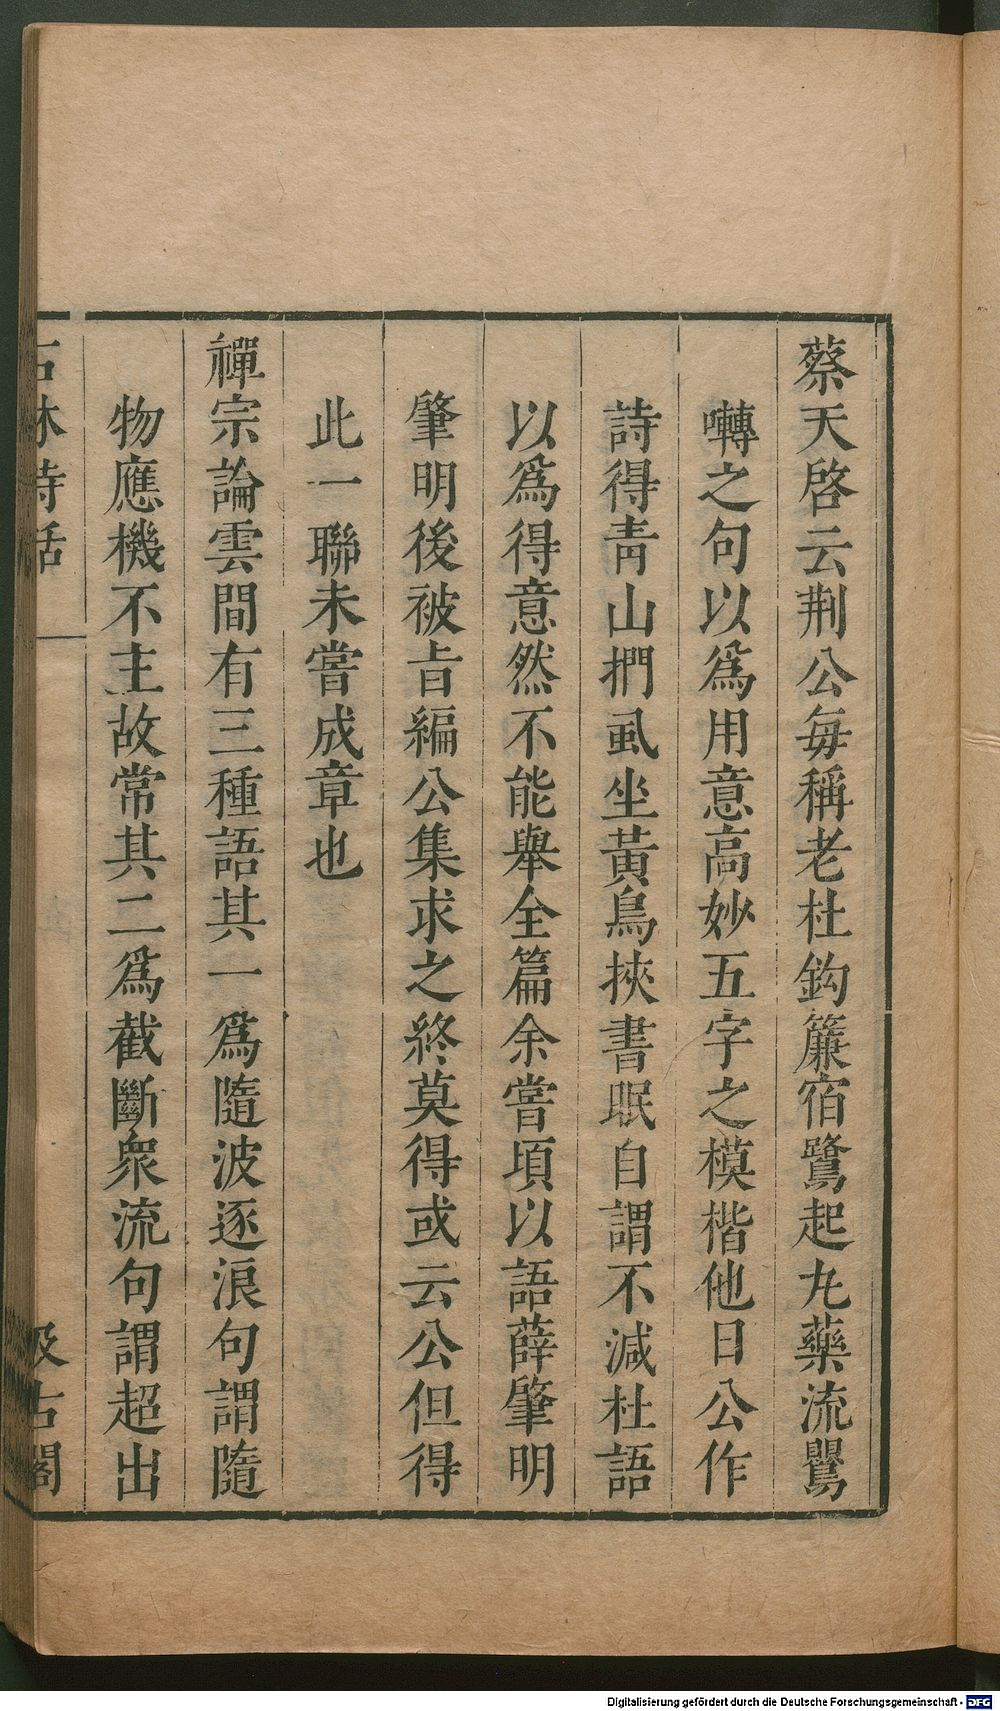 蔡天啓云荆公每稱老杜鈎簾宿鷺起丸藥流鸎
囀之句以爲用意高妙五字之模楷他日公作
詩得青山捫虱坐黃鳥挾書眠自謂不減杜語
以爲得意然不能舉全篇余嘗頃以語薛肇明
肇明後被旨編公集求之終莫得或云公但得
此一聯未嘗成章也
禪宗論雲間有三種語其一爲隨波逐浪句謂隨
物應機不主故常其二爲截斷衆流句謂超出
石林詩話
汲古閣
Digitalisierung gefördert durch die Deutsche Forschungsgemeinschaft - DFG